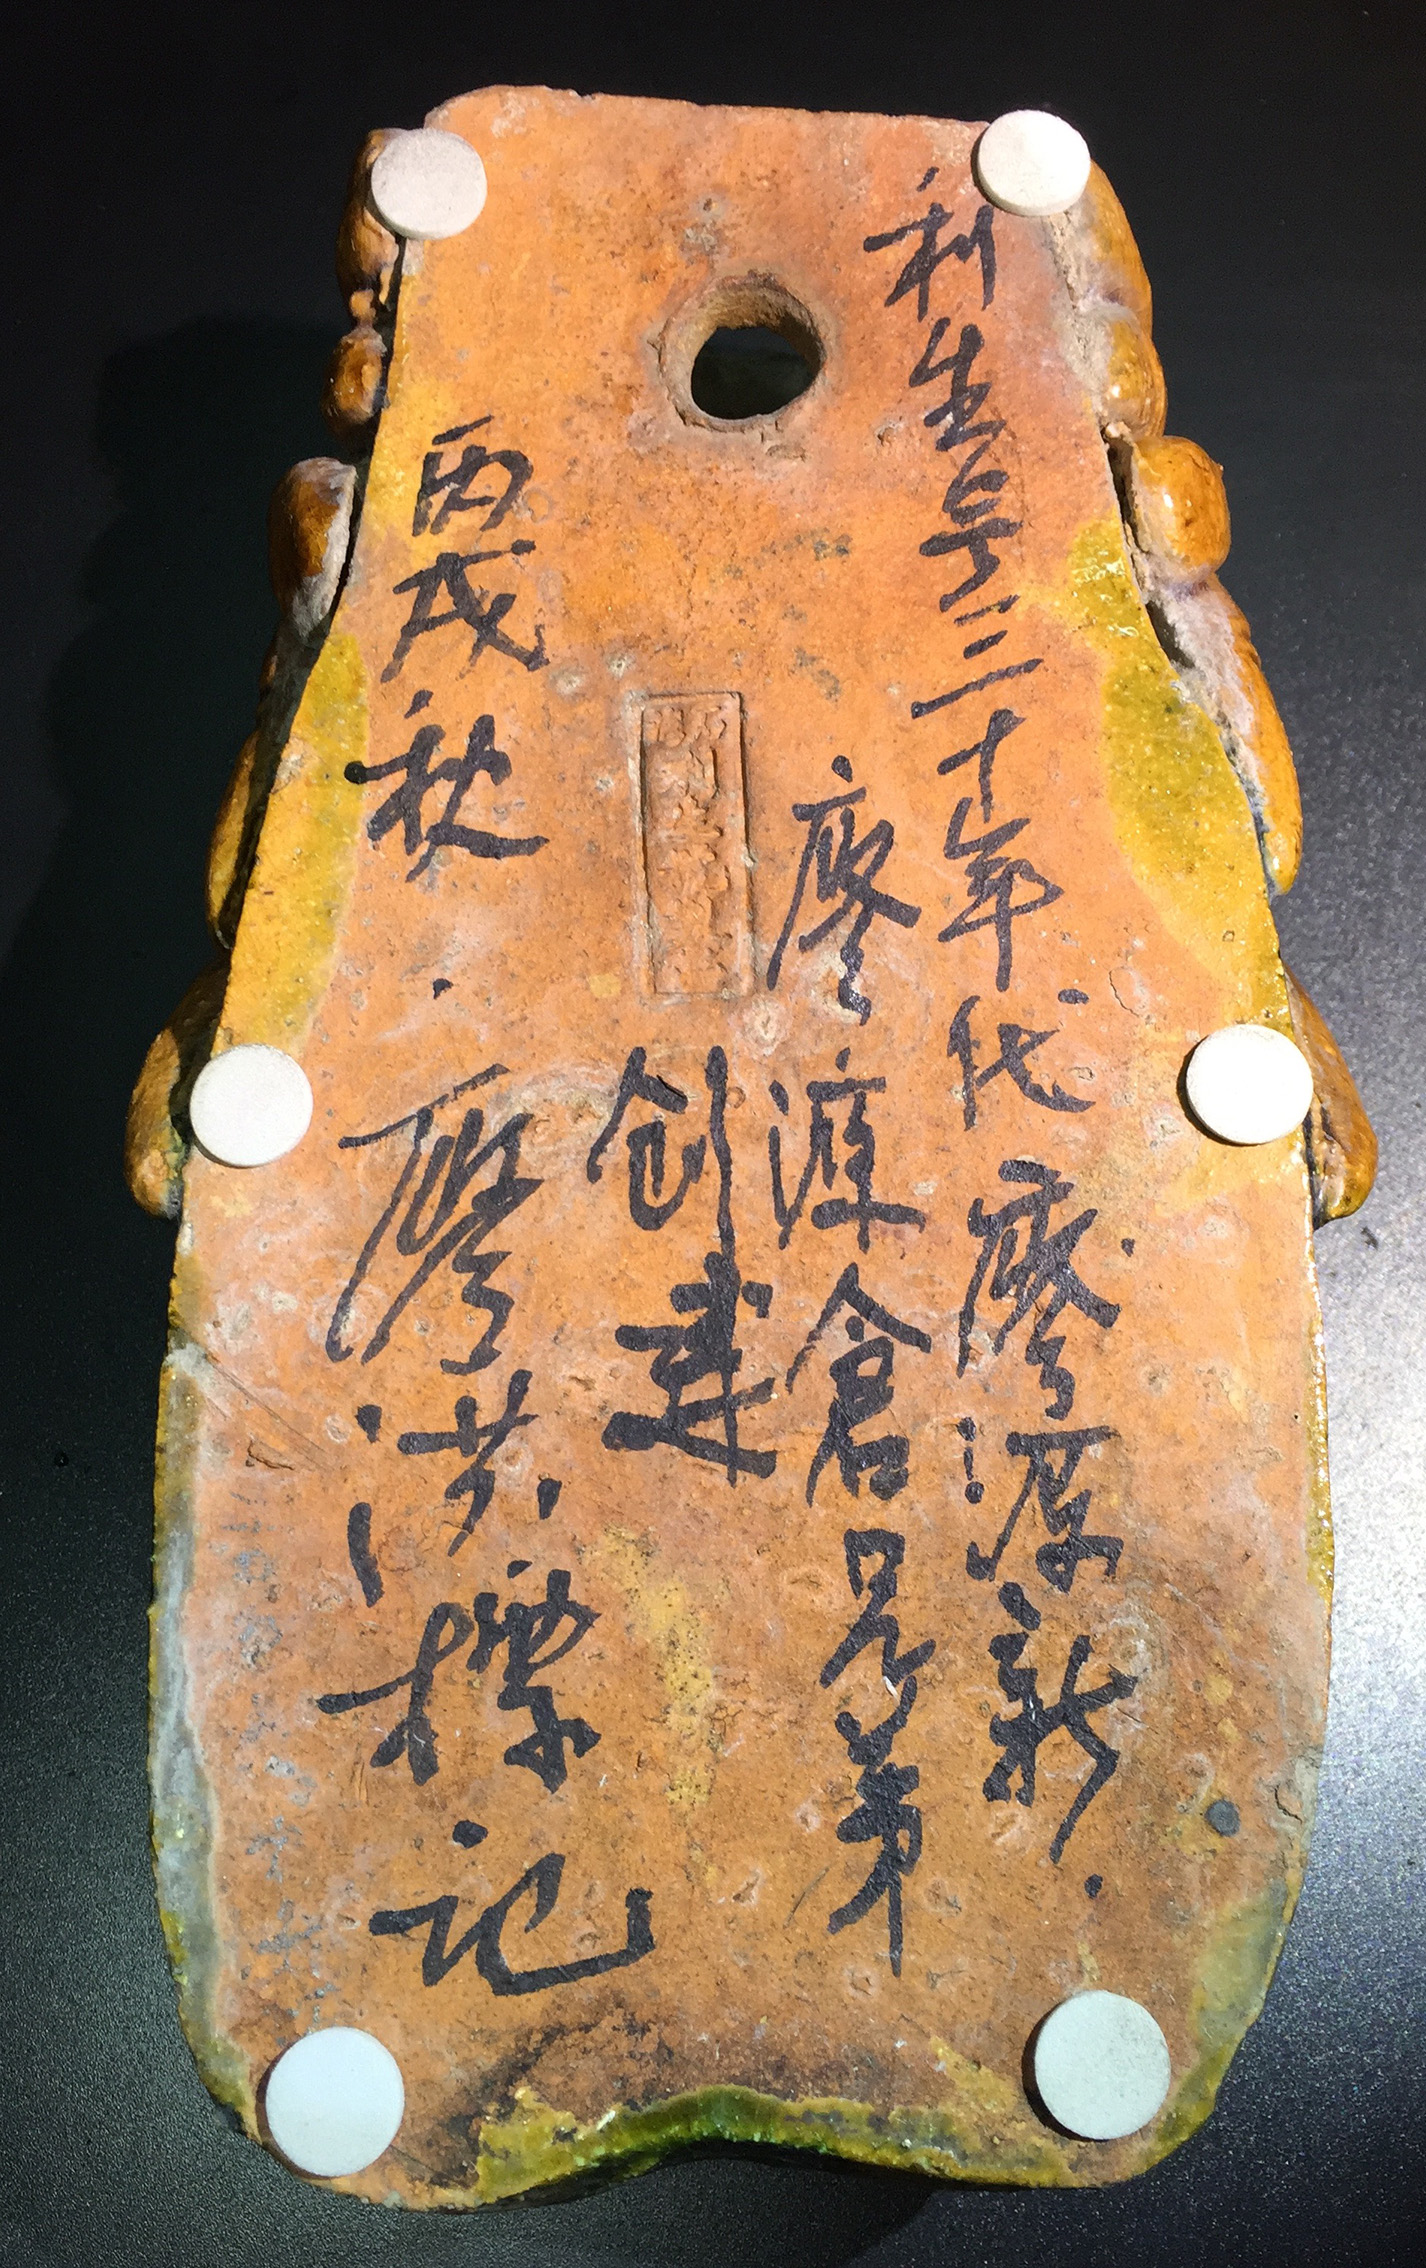 利生号三十年代．廖源新．
廖源仓兄弟
创建
丙戌秋．廖洪标记